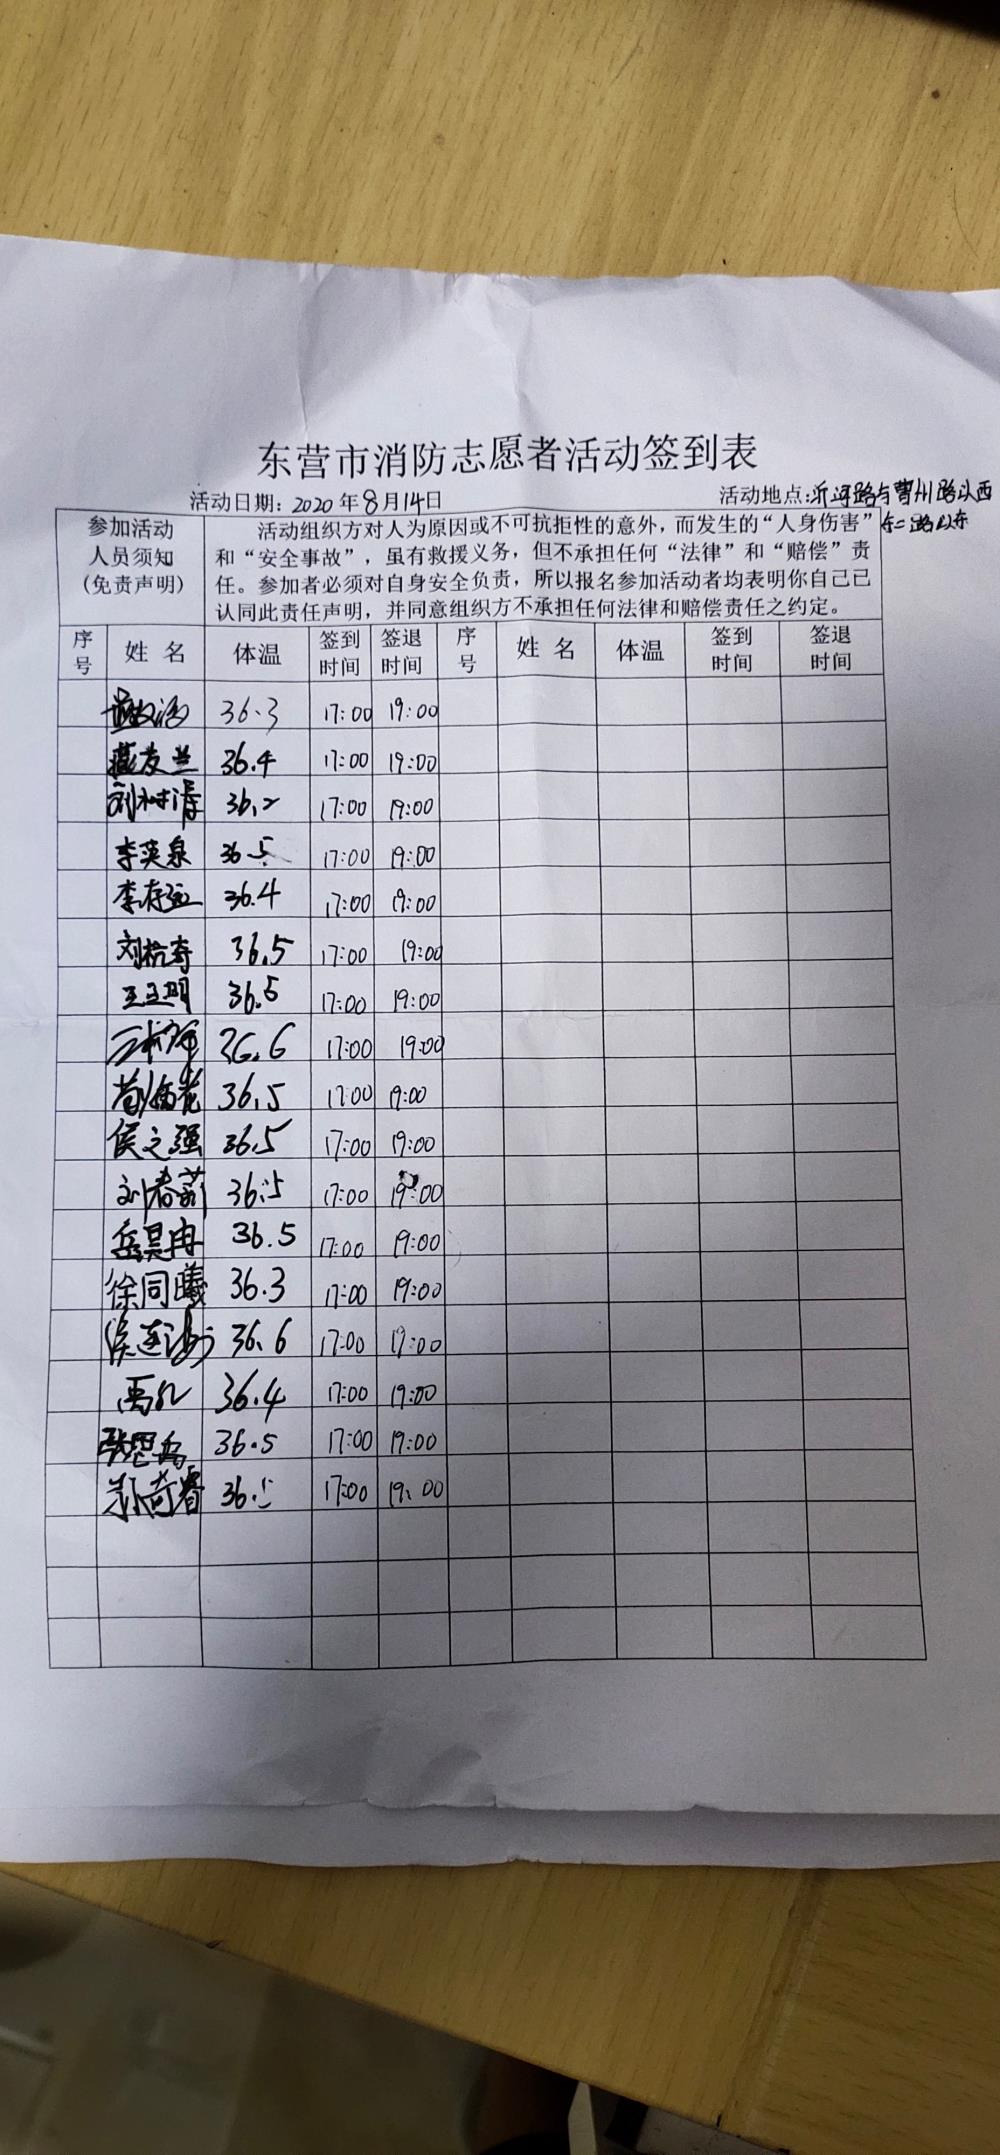 东营市消防志愿者活动签到表
活动日期：2020年8月14日 活动地点：沂河路与曹州路以西
东二路以东
参加活动人员须知（免责声明）
活动组织方对人为原因或不可抗拒性的意外，而发生的“人身伤害”
和“安全事故”，虽有救援义务，但不承担任何“法律”和“赔偿”责
任。参加者必须对自身安全负责，所以报名参加活动者均表明你自己已
认同此责任声明，并同意组织方不承担任何法律和赔偿责任之约定。
序号 姓名 体温 签到时间 签退时间 序号 姓名 体温 签到时间 签退时间
36.3 17:00 19:00
36.4 17:00 19:00
刘树清 36.2 17:00 19:00
李英泉 36.5 17:00 19:00
李存 36.4 17:00 19:00
刘杭奇 36.5 17:00 19:00
王玉明 36.5 17:00 19:00
36.6 17:00 19:00
36.5 17:00 19:00
侯之强 36.5 17:00 19:00
刘春 36.5 17:00 19:00
岳昊冉 36.5 17:00 19:00
徐同曦 36.3 17:00 19:00
侯连海 36.6 17:00 19:00
禹 36.4 17:00 19:00
36.5 17:00 19:00
奇睿 36.5 17:00 19:00